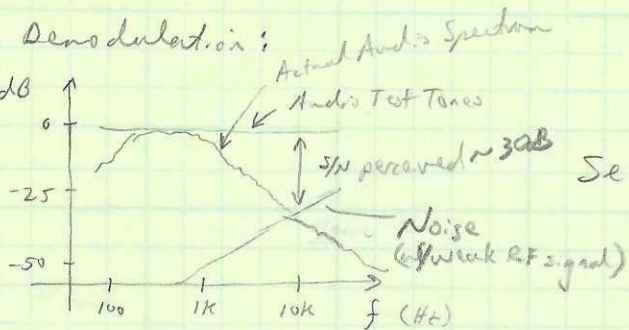 Demodulation:
Actual Audio Spectrum
Audio Test Tones
dB
0
-25
-50
S/N perceived ~ 30dB
Se
Noise
(w/weak RF signal)
100
1K
10K
f (Hz)